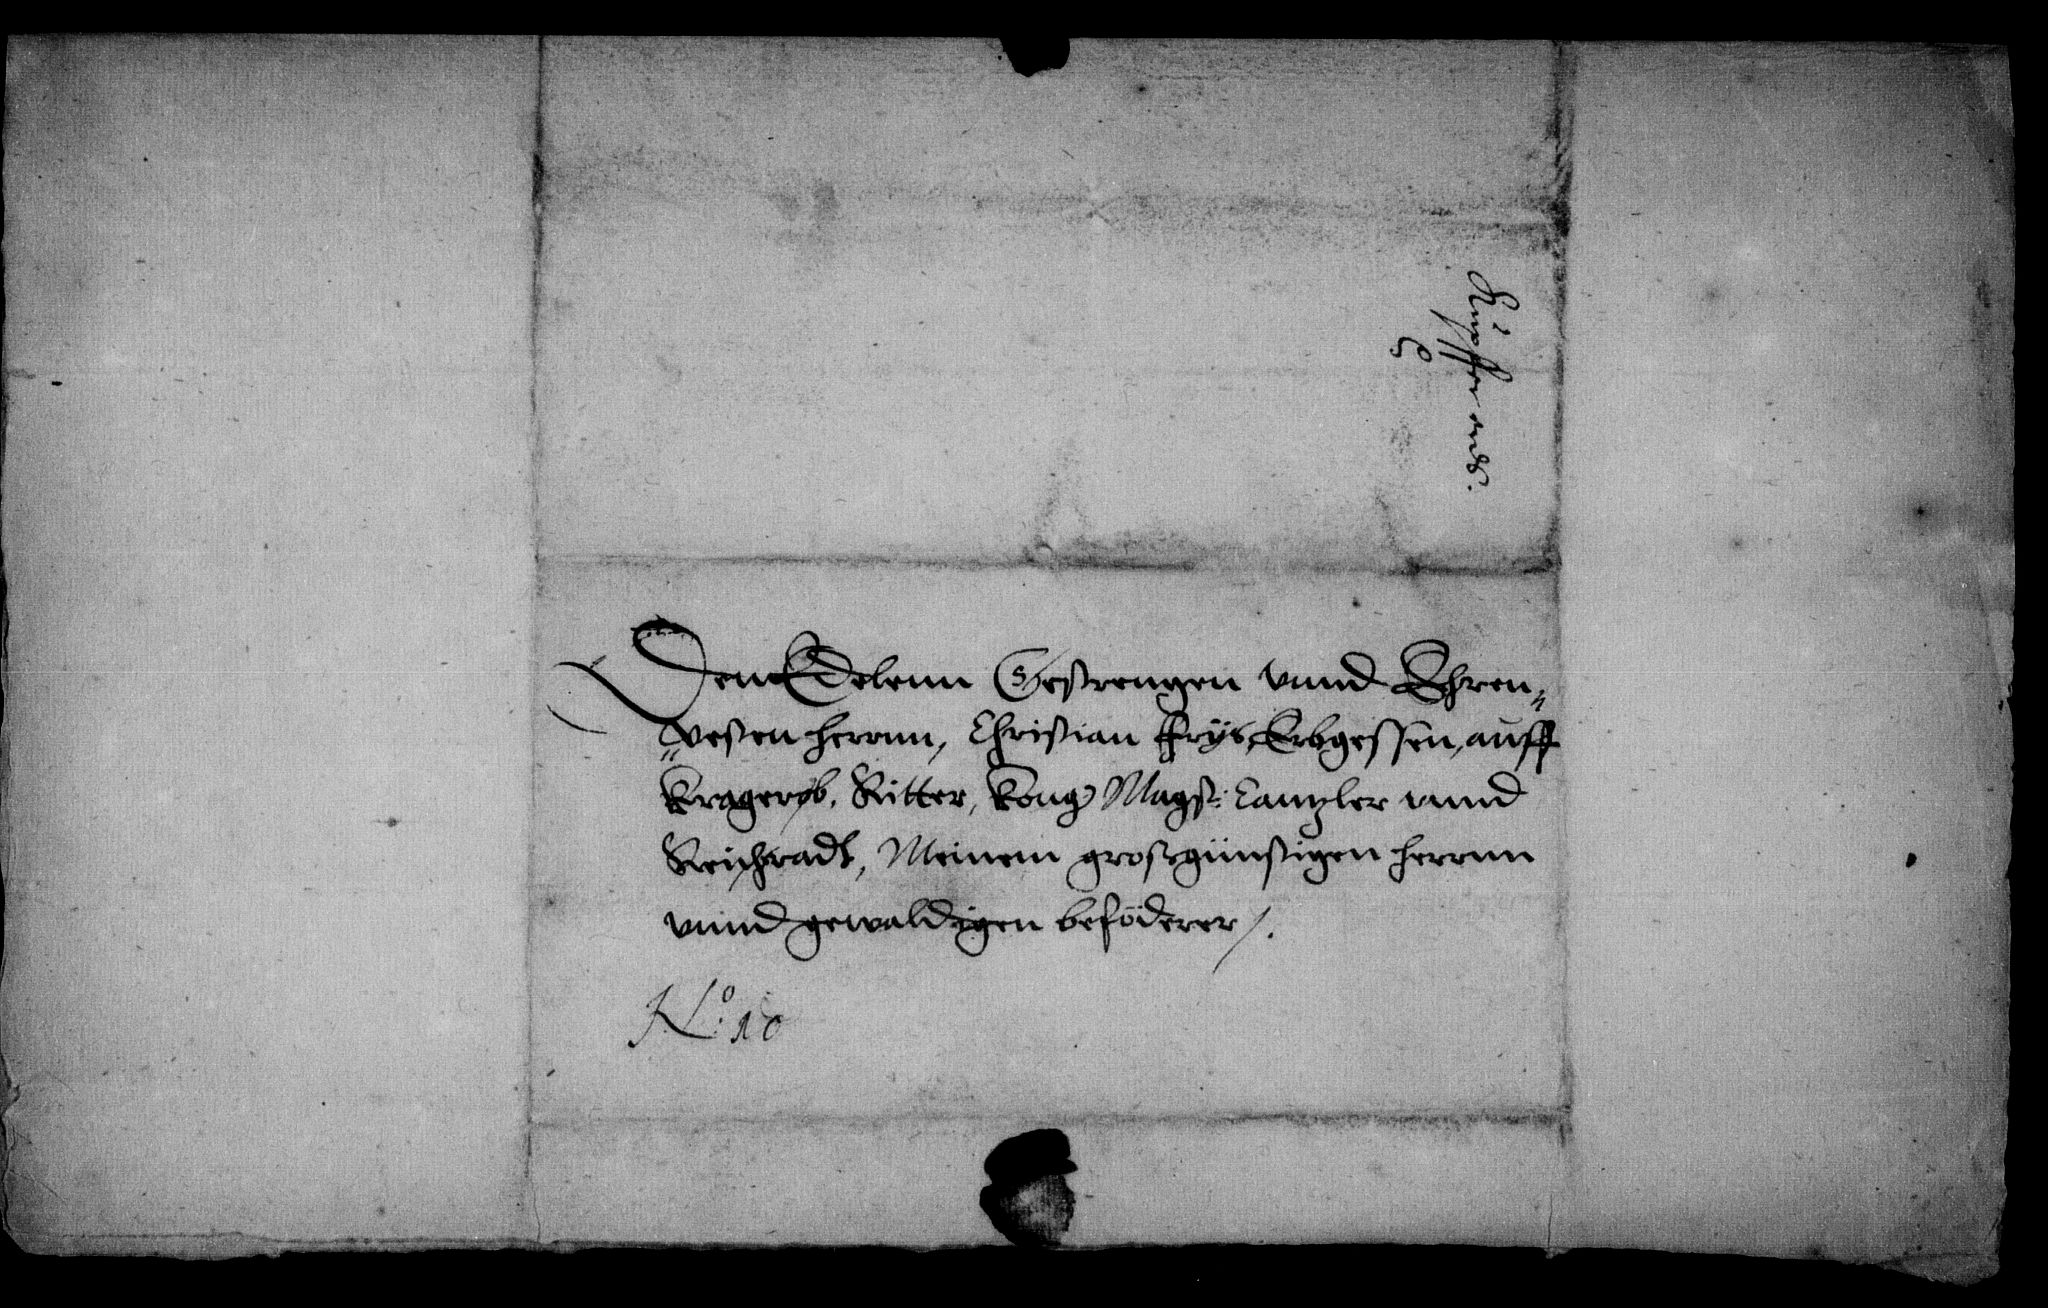 Kupffer ends.
Dem Edelenn Gestrengen vnnd Ehren„
„vesten herrnn, Christian Frÿs, Erbgessen, auff
Kragerøb, Ritter, Kong Magst: Cantzler vnnd
Reichradt, Meinem grosgünstigen herrnn
vnnd gewaldigen beföderer /.
No: 10